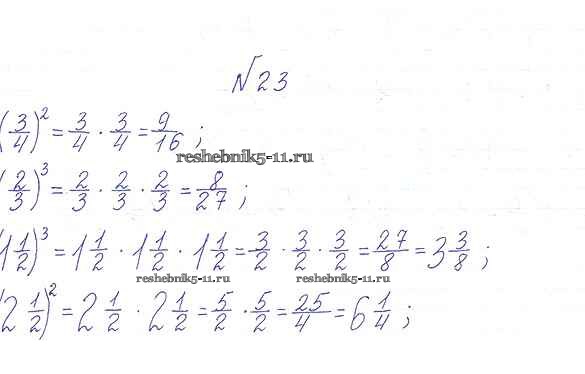 №23
(3/4)² = 3/4 · 3/4 = 9/16 ;
reshebnik5-11.ru
(2/3)³ = 2/3 · 2/3 · 2/3 = 8/27 ;
(1 1/2)³ = 1 1/2 · 1 1/2 · 1 1/2 = 3/2 · 3/2 · 3/2 = 27/8 = 3 3/8 ;
reshebnik5-11.ru reshebnik5-11.ru
(2 1/2)² = 2 1/2 · 2 1/2 = 5/2 · 5/2 = 25/4 = 6 1/4 ;